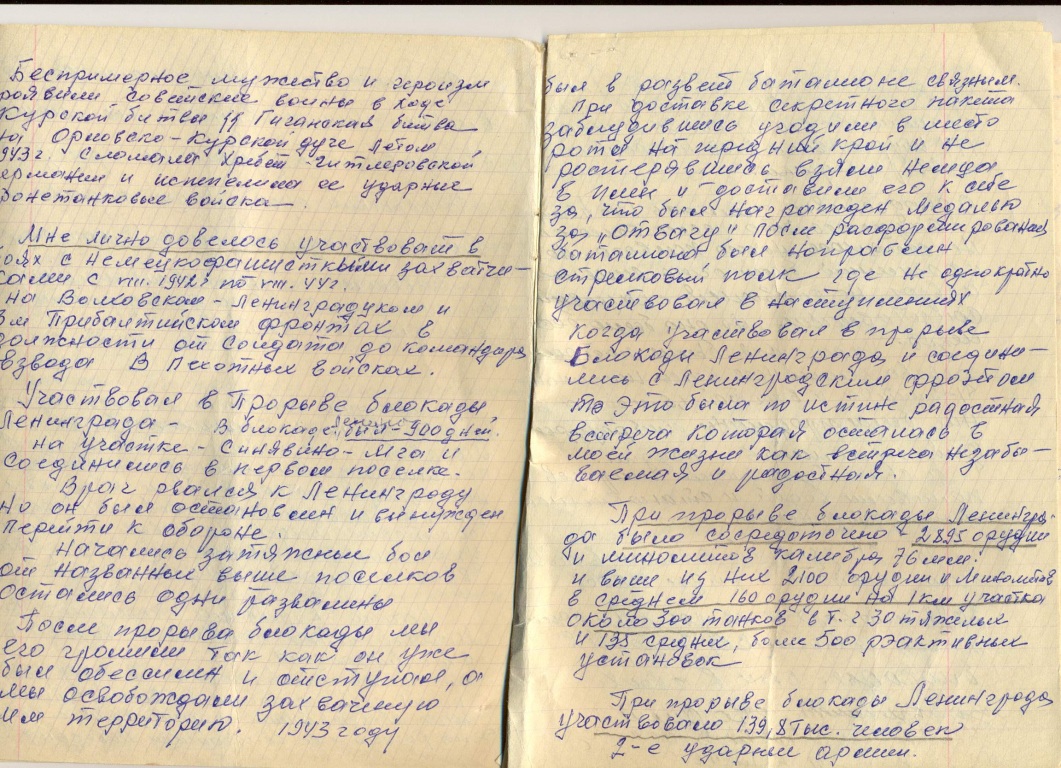 Беспримерное мужество и героизм
роявили советские воины в ходе
Курской битвы. Гигантская битва
на Орловско-Курской дуге летом
943 г. сломала хребет гитлеровской
ермании и испепелила ее ударные
ронетанковые войска.
Мне лично довелось участвовать в
оях с немецкофашисткими захватчи-
ками с VIII. 1942г по VIII. 44г.
на Волховском - Ленинградском и
ом Прибалтийском фронтах в
должности от солдата до командира
взвода в пехотных войсках.
Участвовал в Прорыве блокады
Ленинграда - В блокаде был - 900 дней.
на участке - Синявино - Мга и
соединились в первом поселке.
Враг рвался к Ленинграду
но он был остановлен и вынужден
перейти к обороне.
Начались затяжные бои
от названных выше поселков
остались одни развалины
После прорыва блокады мы
его громили так как он уже
был обессилен и отступал, а
мы освобождали захваченую
им территорию. 1943 году
был в развед баталионе связным.
При доставке секретного пакета
заблудившись угодили в место
роты на передний край и не
ростерявшись взяли немца
в плен и доставили его к себе
за, что был награжден медалью
за „Отвагу" после расформирования
баталиона был направлен
стрелковый полк где не однократно
участвовал в наступлениях
когда участвовал в прорыве
Блокады Ленинграда и соедини-
лись с Ленинградским фронтом
то это была по истине радостная
встреча которая осталась в
моей жизни как встреча незабы-
ваемая и радостная.
При прорыве блокады Ленингра-
да было сосредоточено - 2.895 орудий
и минометов калибра 76 мм.
и выше из них 2100 орудий и минометов
в среднем 160 орудий на 1 км участка
около 500 танков в т.ч 30 тяжелых
и 135 средних, более 500 рэактивных
установок
При прорыве блокады Ленинграда
участвовало 139,8 тыс. человек
2-е ударных армии.